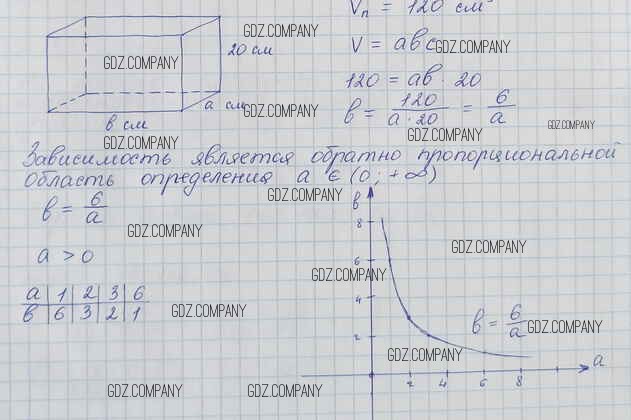 Vп = 120 см
GDZ.COMPANY
V = abc
GDZ.COMPANY
20 см
GDZ.COMPANY
120 = ab · 20
a см
GDZ.COMPANY
b = 120 / a · 20 = 6 / a
GDZ.COMPANY
b см
GDZ.COMPANY
GDZ.COMPANY
Зависимость является обратно пропорциональной
Область определения a ∈ (0; +∞)
GDZ.COMPANY
b = 6 / a
b
GDZ.COMPANY
8
GDZ.COMPANY
a > 0
6
GDZ.COMPANY
a 1 2 3 6
b 6 3 2 1
4
GDZ.COMPANY
b = 6 / a
GDZ.COMPANY
2
GDZ.COMPANY
a
2 4 6 8
GDZ.COMPANY
GDZ.COMPANY